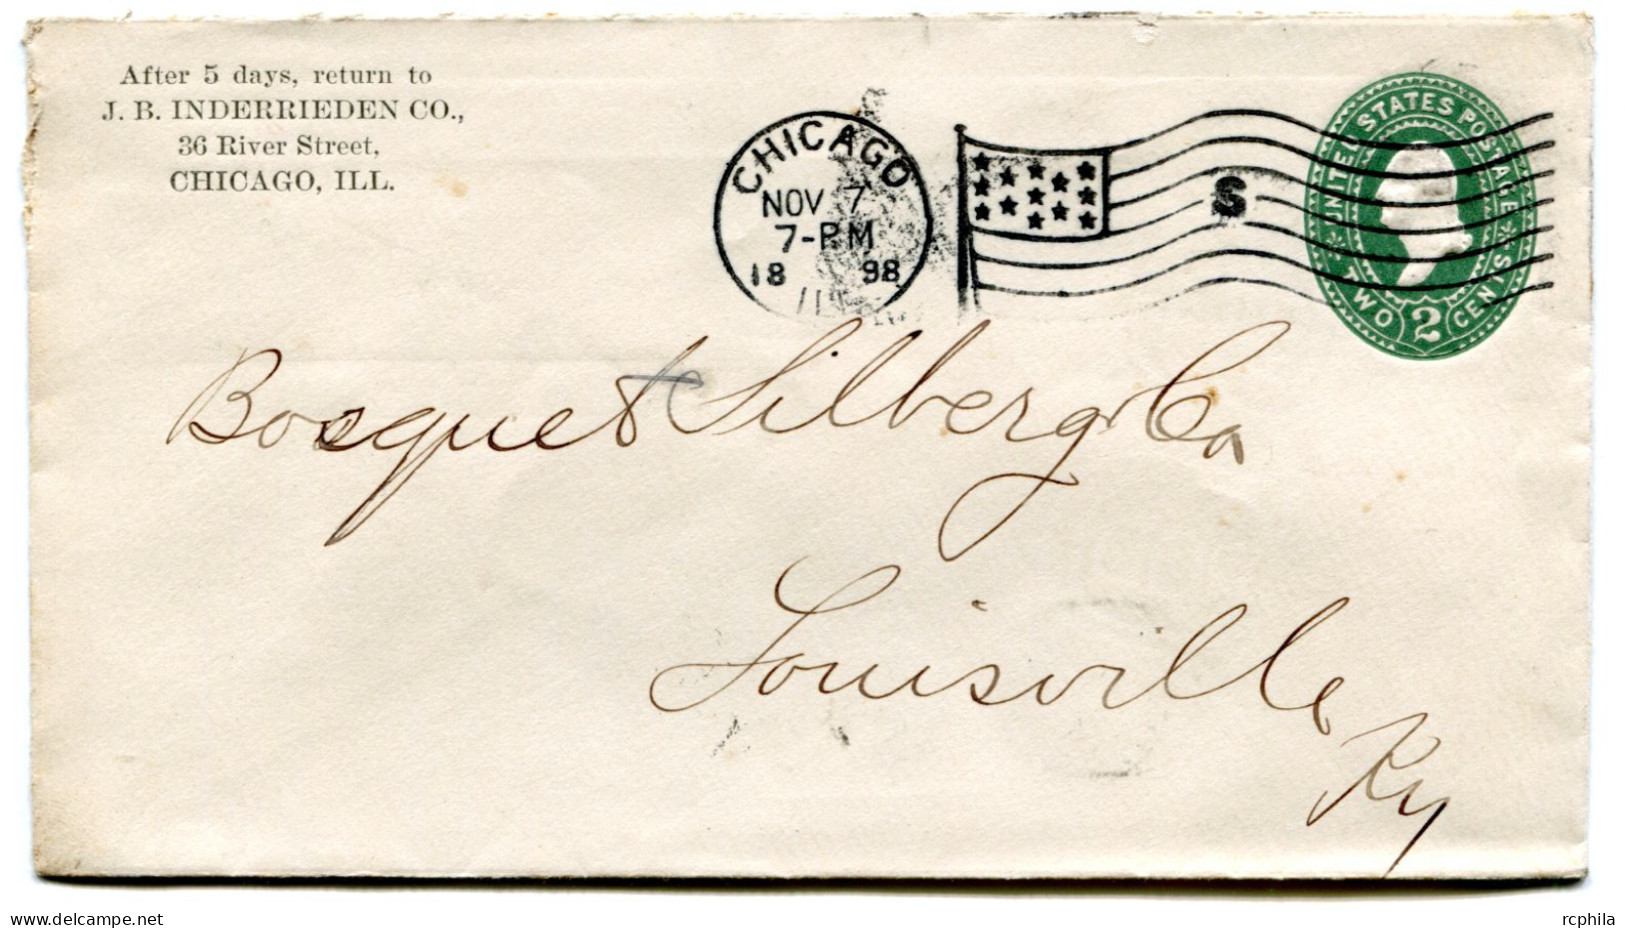 After 5 days, return to
J. B. INDERRIEDEN CO.,
36 River Street,
CHICAGO, ILL.
CHICAGO
NOV 7
7-PM
18 98
S
UNITED STATES POSTAGE
TWO 2 CENTS
Bosquet Silberg & Co
Louisville
Ky
www.delcampe.net
rcphila